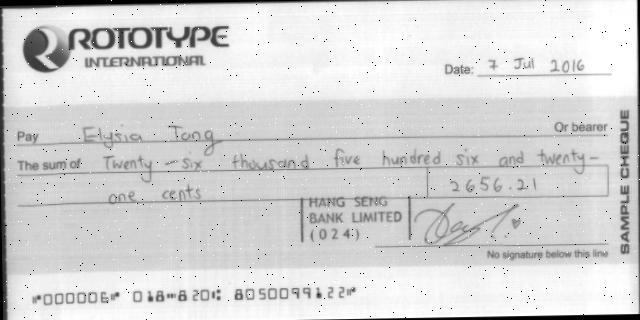 ROTOTYPE
INTERNATIONAL
Date: 7 Jul 2016
Pay Elysia Tang Or bearer
The sum of Twenty-six thousand five hundred six and twenty-
one cents
2656.21
HANG SENG
BANK LIMITED
(024)
No signature below this line
SAMPLE CHEQUE
"000006" 018"820: 8050099122"